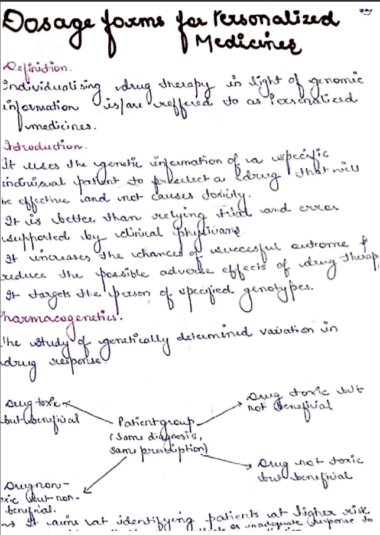 Dosage forms for Personalized
Medicines
Definition.
Individualising drug therapy in light of genomic
information is/are reffered to as Personalized
medicines.
Introduction.
It uses the genetic information of a specific
individual patient to preselect a drug that will
be effective and not causes toxicity.
It is better than relying trial and error
supported by clinical physicians.
It increases the chances of successful outcome &
reduce the possible adverse effects of drug therap
It targets the person of specified genotypes.
harmacogenetics.
The study of genetically determined variation in
drug response.
Drug toxic
but beneficial
Patient group
(same diagnosis,
same prescription)
Drug toxic but
not beneficial
Drug non-
xic but non-
beneficial.
Drug not toxic
but beneficial
→ It aims at identifying patients at higher risk
inadequate response to